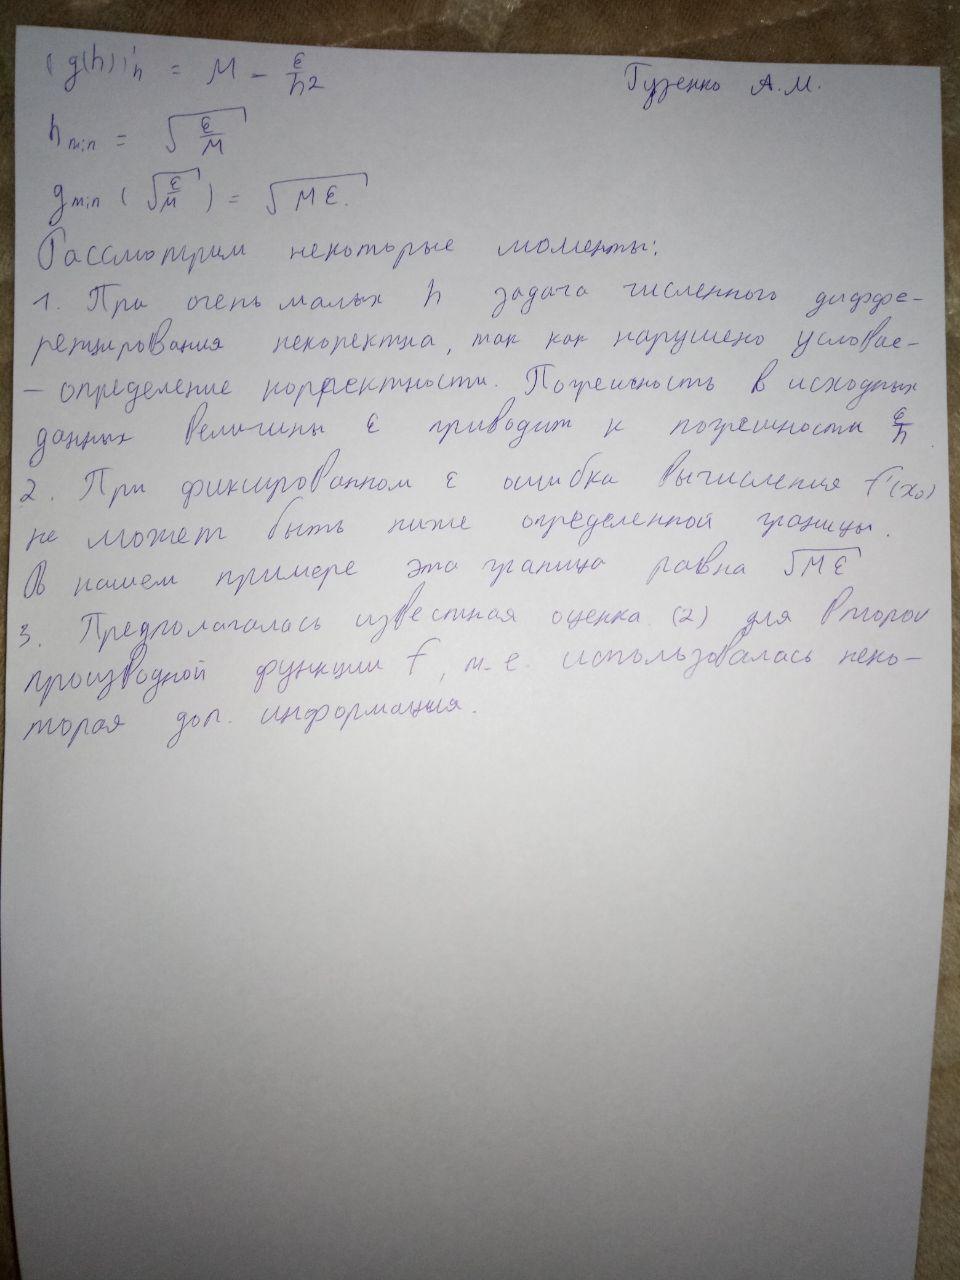 (g(h))'h = M - ε/h2
Гузенко А.М.
hmin = √(ε/M)
gmin (√(ε/M)) = √(Mε).
Рассмотрим некоторые моменты:
1. При очень малых h задача численного диффе-
ренцирования некоректна, так как нарушено условие-
- определение корректности. Погрешность в исходных
данных величины ε приводит к погрешности ε/h.
2. При фиксированном ε ошибка вычисления f'(x0)
не может быть ниже определенной границы.
В нашем примере эта граница равна √(Mε)
3. Предполагалась известная оценка (2) для второй
производной функции f, т.е. использовалась неко-
торая доп. информация.